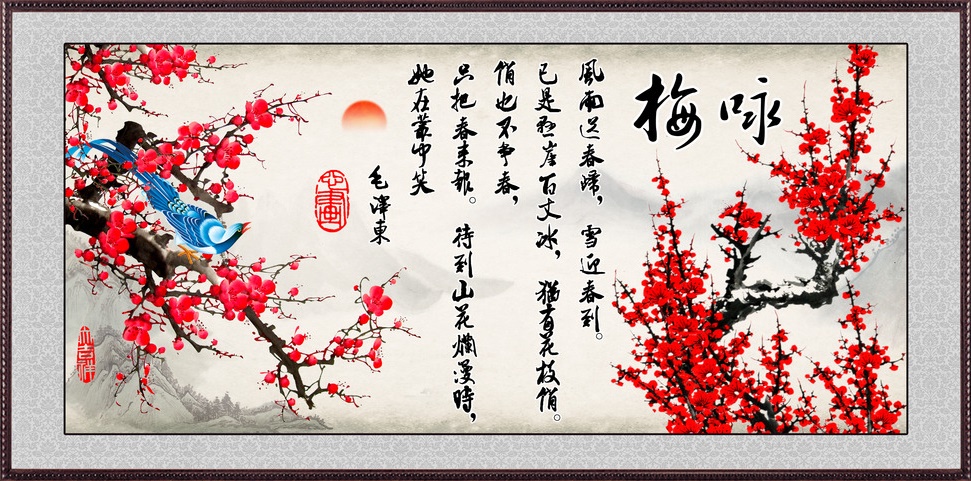 咏梅
風雨送春歸，雪迎春到。
已是懸崖百丈冰，猶有花枝俏。
俏也不爭春，
只把春來報。待到山花爛漫時，
她在叢中笑
毛澤東
大吉祥